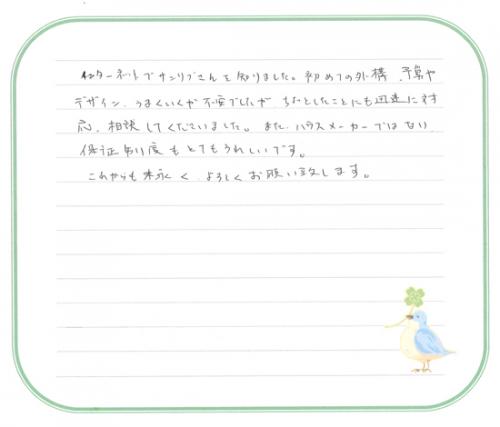 インターネットでサンリブさんを知りました。初めての外構、予算や
デザイン、うまくいくか不安でしたが、ちょっとしたことにも迅速に対
応、相談してくださいました。また、ハウスメーカーではない
保証制度もとてもうれしいです。
これからも末永く、よろしくお願い致します。